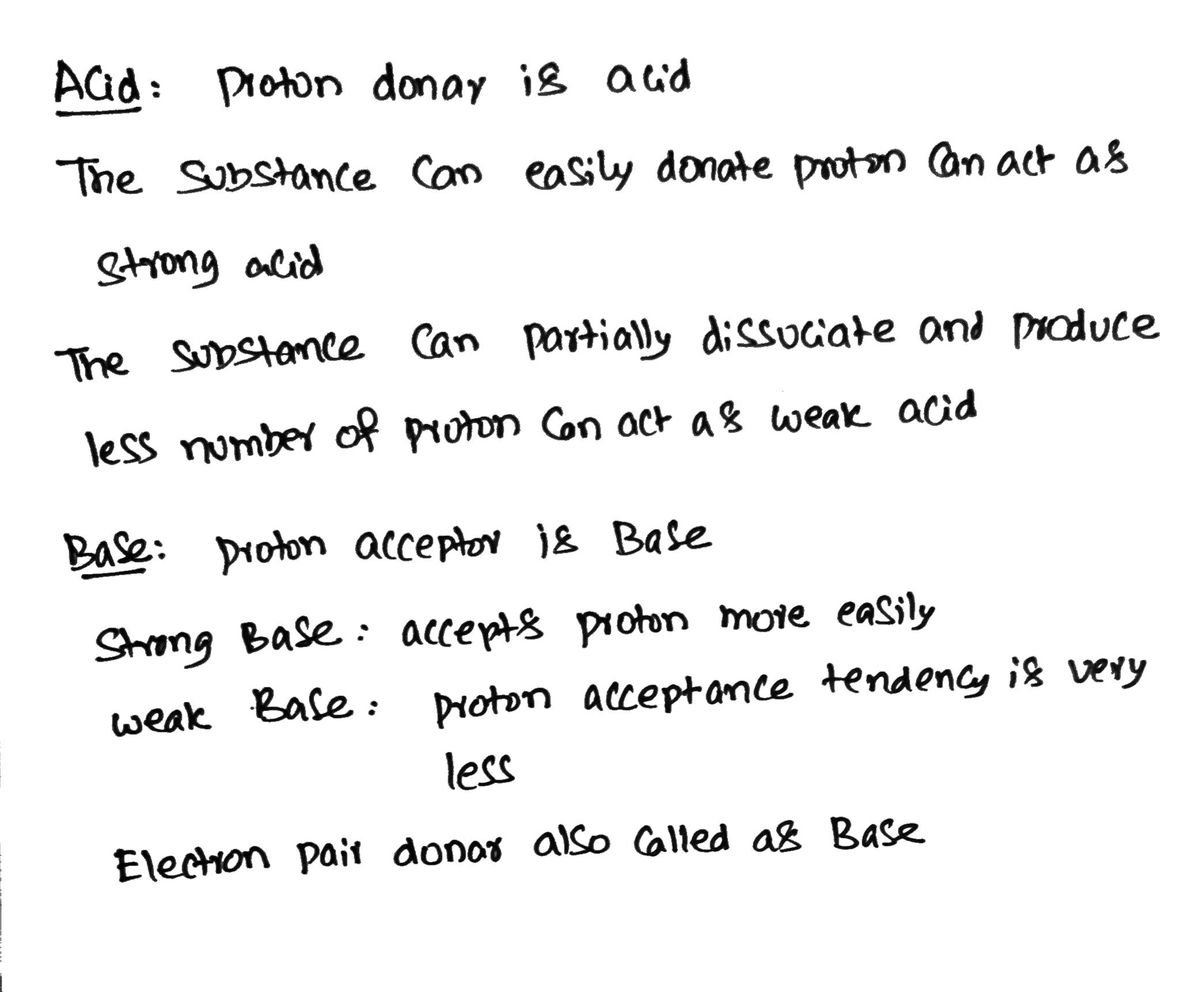 Acid: Proton donar is acid
The Substance Can easily donate proton Can act as
Strong acid
The Substance Can Partially dissociate and produce
less number of proton Can act as weak acid
Base: proton acceptor is Base
Strong Base: accepts proton more easily
weak Base: proton acceptance tendency is very
less
Electron pair donar also Called as Base